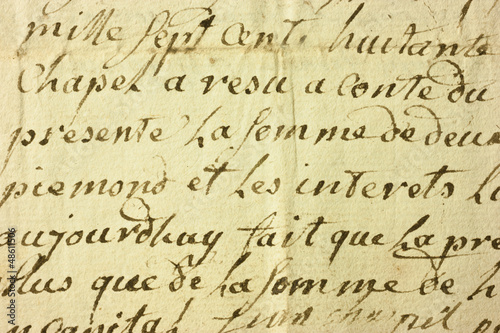 mille sept cent huitante
Chapel a resu a conte du
presente La somme de deux
piemond et Les interets L
ujourdhuy fait que La pre
lus que de La somme de
n capital